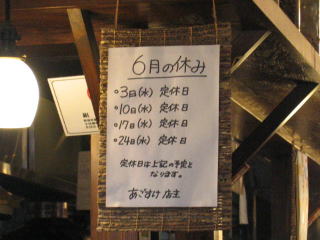 6月の休み
○3日(水) 定休日
○10日(水) 定休日
○17日(水) 定休日
○24日(水) 定休日
定休日は上記の予定と
なります。
あごすけ 店主